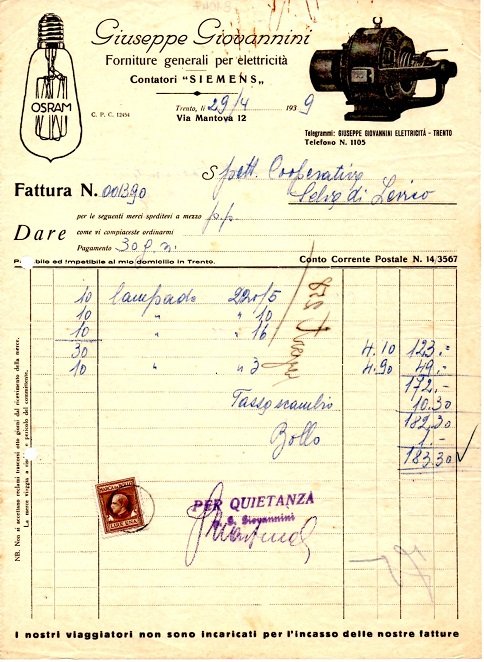 OSRAM
Giuseppe Giovannini
Forniture generali per elettricità
Contatori "SIEMENS"
C. P. C. 12454
Trento, li 29/4 1939
Via Mantova 12
Telegrammi: GIUSEPPE GIOVANNINI ELETTRICITÀ - TRENTO
Telefono N. 1105
Spett. Cooperativa
Selva di Levico
Fattura N. 001390
per le seguenti merci speditesi a mezzo p.p.
Dare come vi compiaceste ordinarmi
Pagamento 30 g.
Pagabile ed impetibile al mio domicilio in Trento.
Conto Corrente Postale N. 14/3567
10 Lampade 220/5
10 " " 10
10 " " 16
30 4.10 123.-
10 " " 3 4.90 49.-
172.-
Tassoscambio 10.30
182.30
Bollo 1.-
183.30
LIRE UNA
PER QUIETANZA
Giovannini
NB. Non si accettano reclami trascorsi otto giorni dal ricevimento della merce.
La merce viaggia a rischio e pericolo del committente.
I nostri viaggiatori non sono incaricati per l'incasso delle nostre fatture